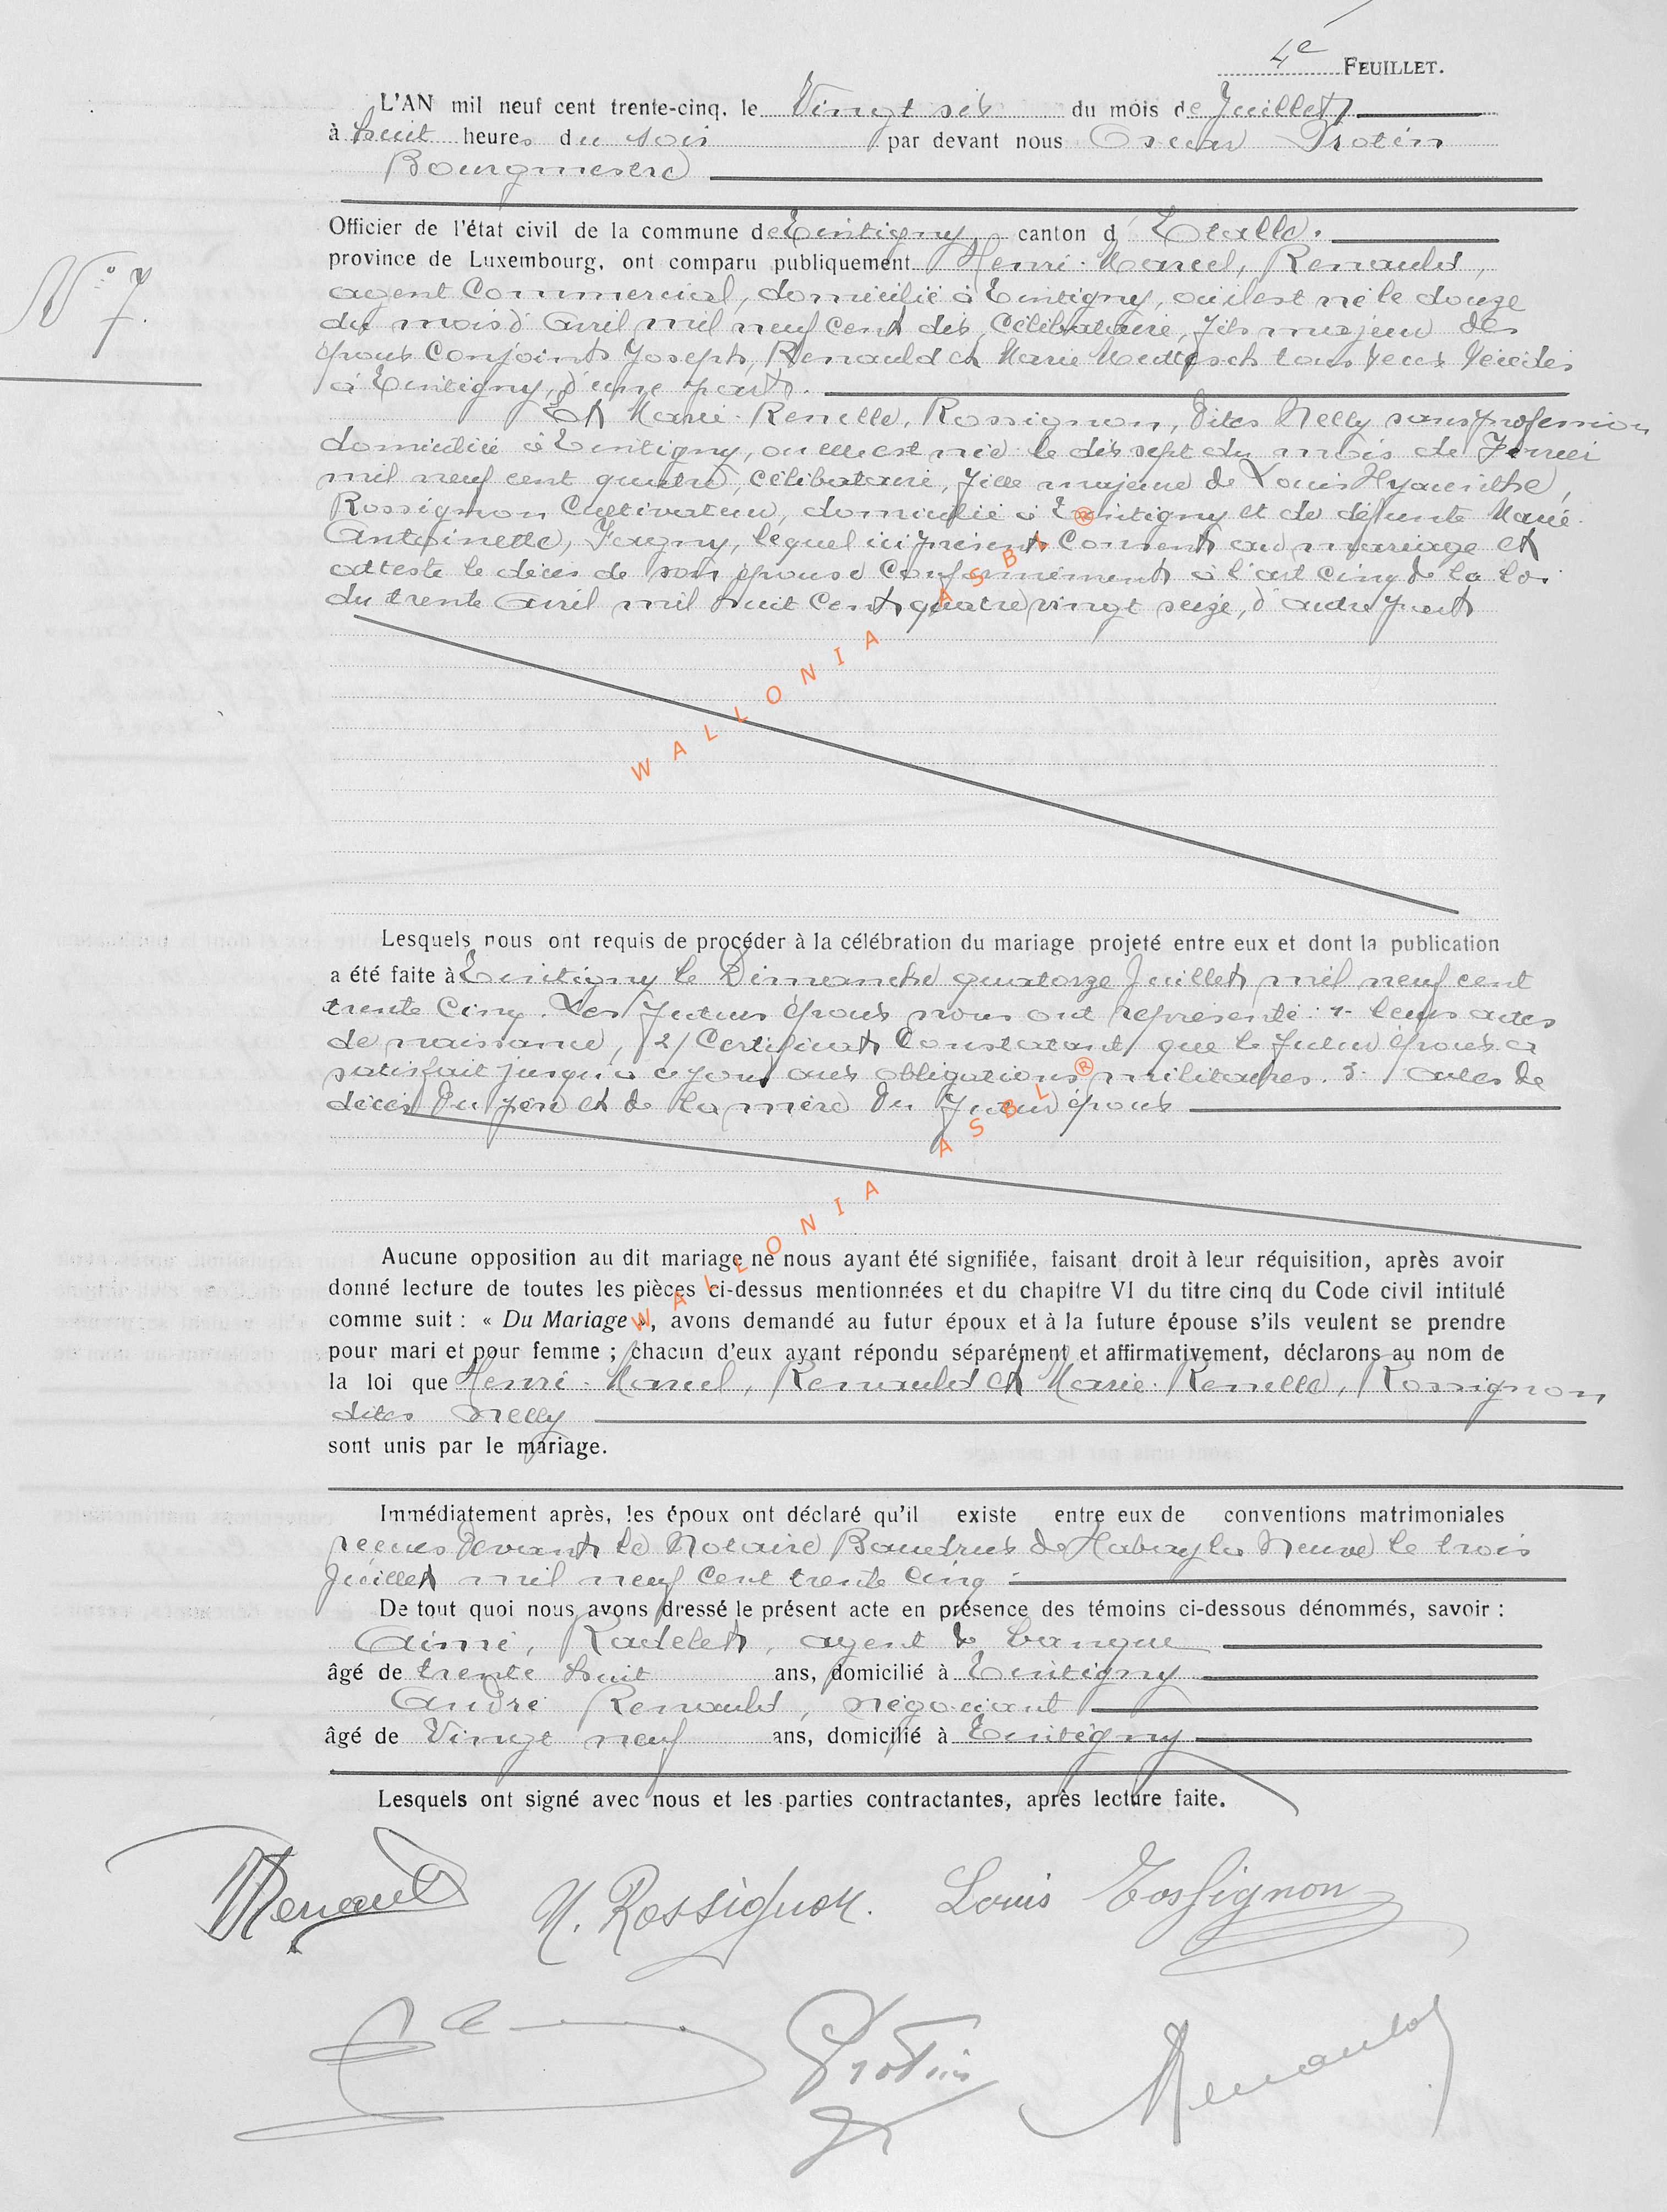 4e FEUILLET.
L'AN mil neuf cent trente-cinq, le Vingt six du mois de Juillet
à huit heures du soir par devant nous Oscar Protin
Bourgmestre
Officier de l'état civil de la commune de Tintigny canton d' Etalle.
province de Luxembourg, ont comparu publiquement Henri-Marcel, Renauld,
N° 7.
agent Commercial, domicilié à Tintigny, où il est né le douze
du mois d'Avril mil neuf cent dix, Célibataire, fils majeur des
époux Conjoints Joseph, Renauld et Marie tous deux décédés
à Tintigny, d'une part.
Et Marie-Renelle, Rossignon, dites Nelly sans profession
domiciliée à Tintigny, où elle est née le dix sept du mois de
mil neuf cent quatre, célibataire, fille majeure de Louis Hyacinthe,
Rossignon Cultivateur, domicilié à Tintigny et de défunte Marie
Antoinette, Fagny, lequel ici présent Consent au mariage et
atteste le décès de son épouse Conformément à l'art cinq de la loi
du trente Avril mil huit Cent quatre vingt seize, d'autre part
WALLONIA ASBL ®
Lesquels nous ont requis de procéder à la célébration du mariage projeté entre eux et dont la publication
a été faite à Tintigny le Dimanche quatorze Juillet mil neuf cent
trente Cinq. Les futurs époux nous ont représenté: 1- leurs actes
de naissance, 2/ Certificat Constatant que le futur époux a
satisfait jusqu'à ce jour aux obligations militaires. 3- actes de
décès du père et de la mère du futur époux
WALLONIA ASBL ®
Aucune opposition au dit mariage ne nous ayant été signifiée, faisant droit à leur réquisition, après avoir
donné lecture de toutes les pièces ci-dessus mentionnées et du chapitre VI du titre cinq du Code civil intitulé
comme suit : « Du Mariage », avons demandé au futur époux et à la future épouse s'ils veulent se prendre
pour mari et pour femme ; chacun d'eux ayant répondu séparément et affirmativement, déclarons au nom de
la loi que Henri-Marcel, Renauld et Marie-Renelle, Rossignon
dites Nelly
sont unis par le mariage.
Immédiatement après, les époux ont déclaré qu'il existe entre eux de conventions matrimoniales
reçues devant le Notaire Baudrux de Habay la Neuve le trois
Juillet mil neuf Cent trente Cinq
De tout quoi nous avons dressé le présent acte en présence des témoins ci-dessous dénommés, savoir :
Aimé, Radelet, agent de banque
âgé de trente huit ans, domicilié à Tintigny
André Renauld, négociant
âgé de Vingt neuf ans, domicilié à Tintigny
Lesquels ont signé avec nous et les parties contractantes, après lecture faite.
Renauld N. Rossignon. Louis Rossignon
Protin Renauld